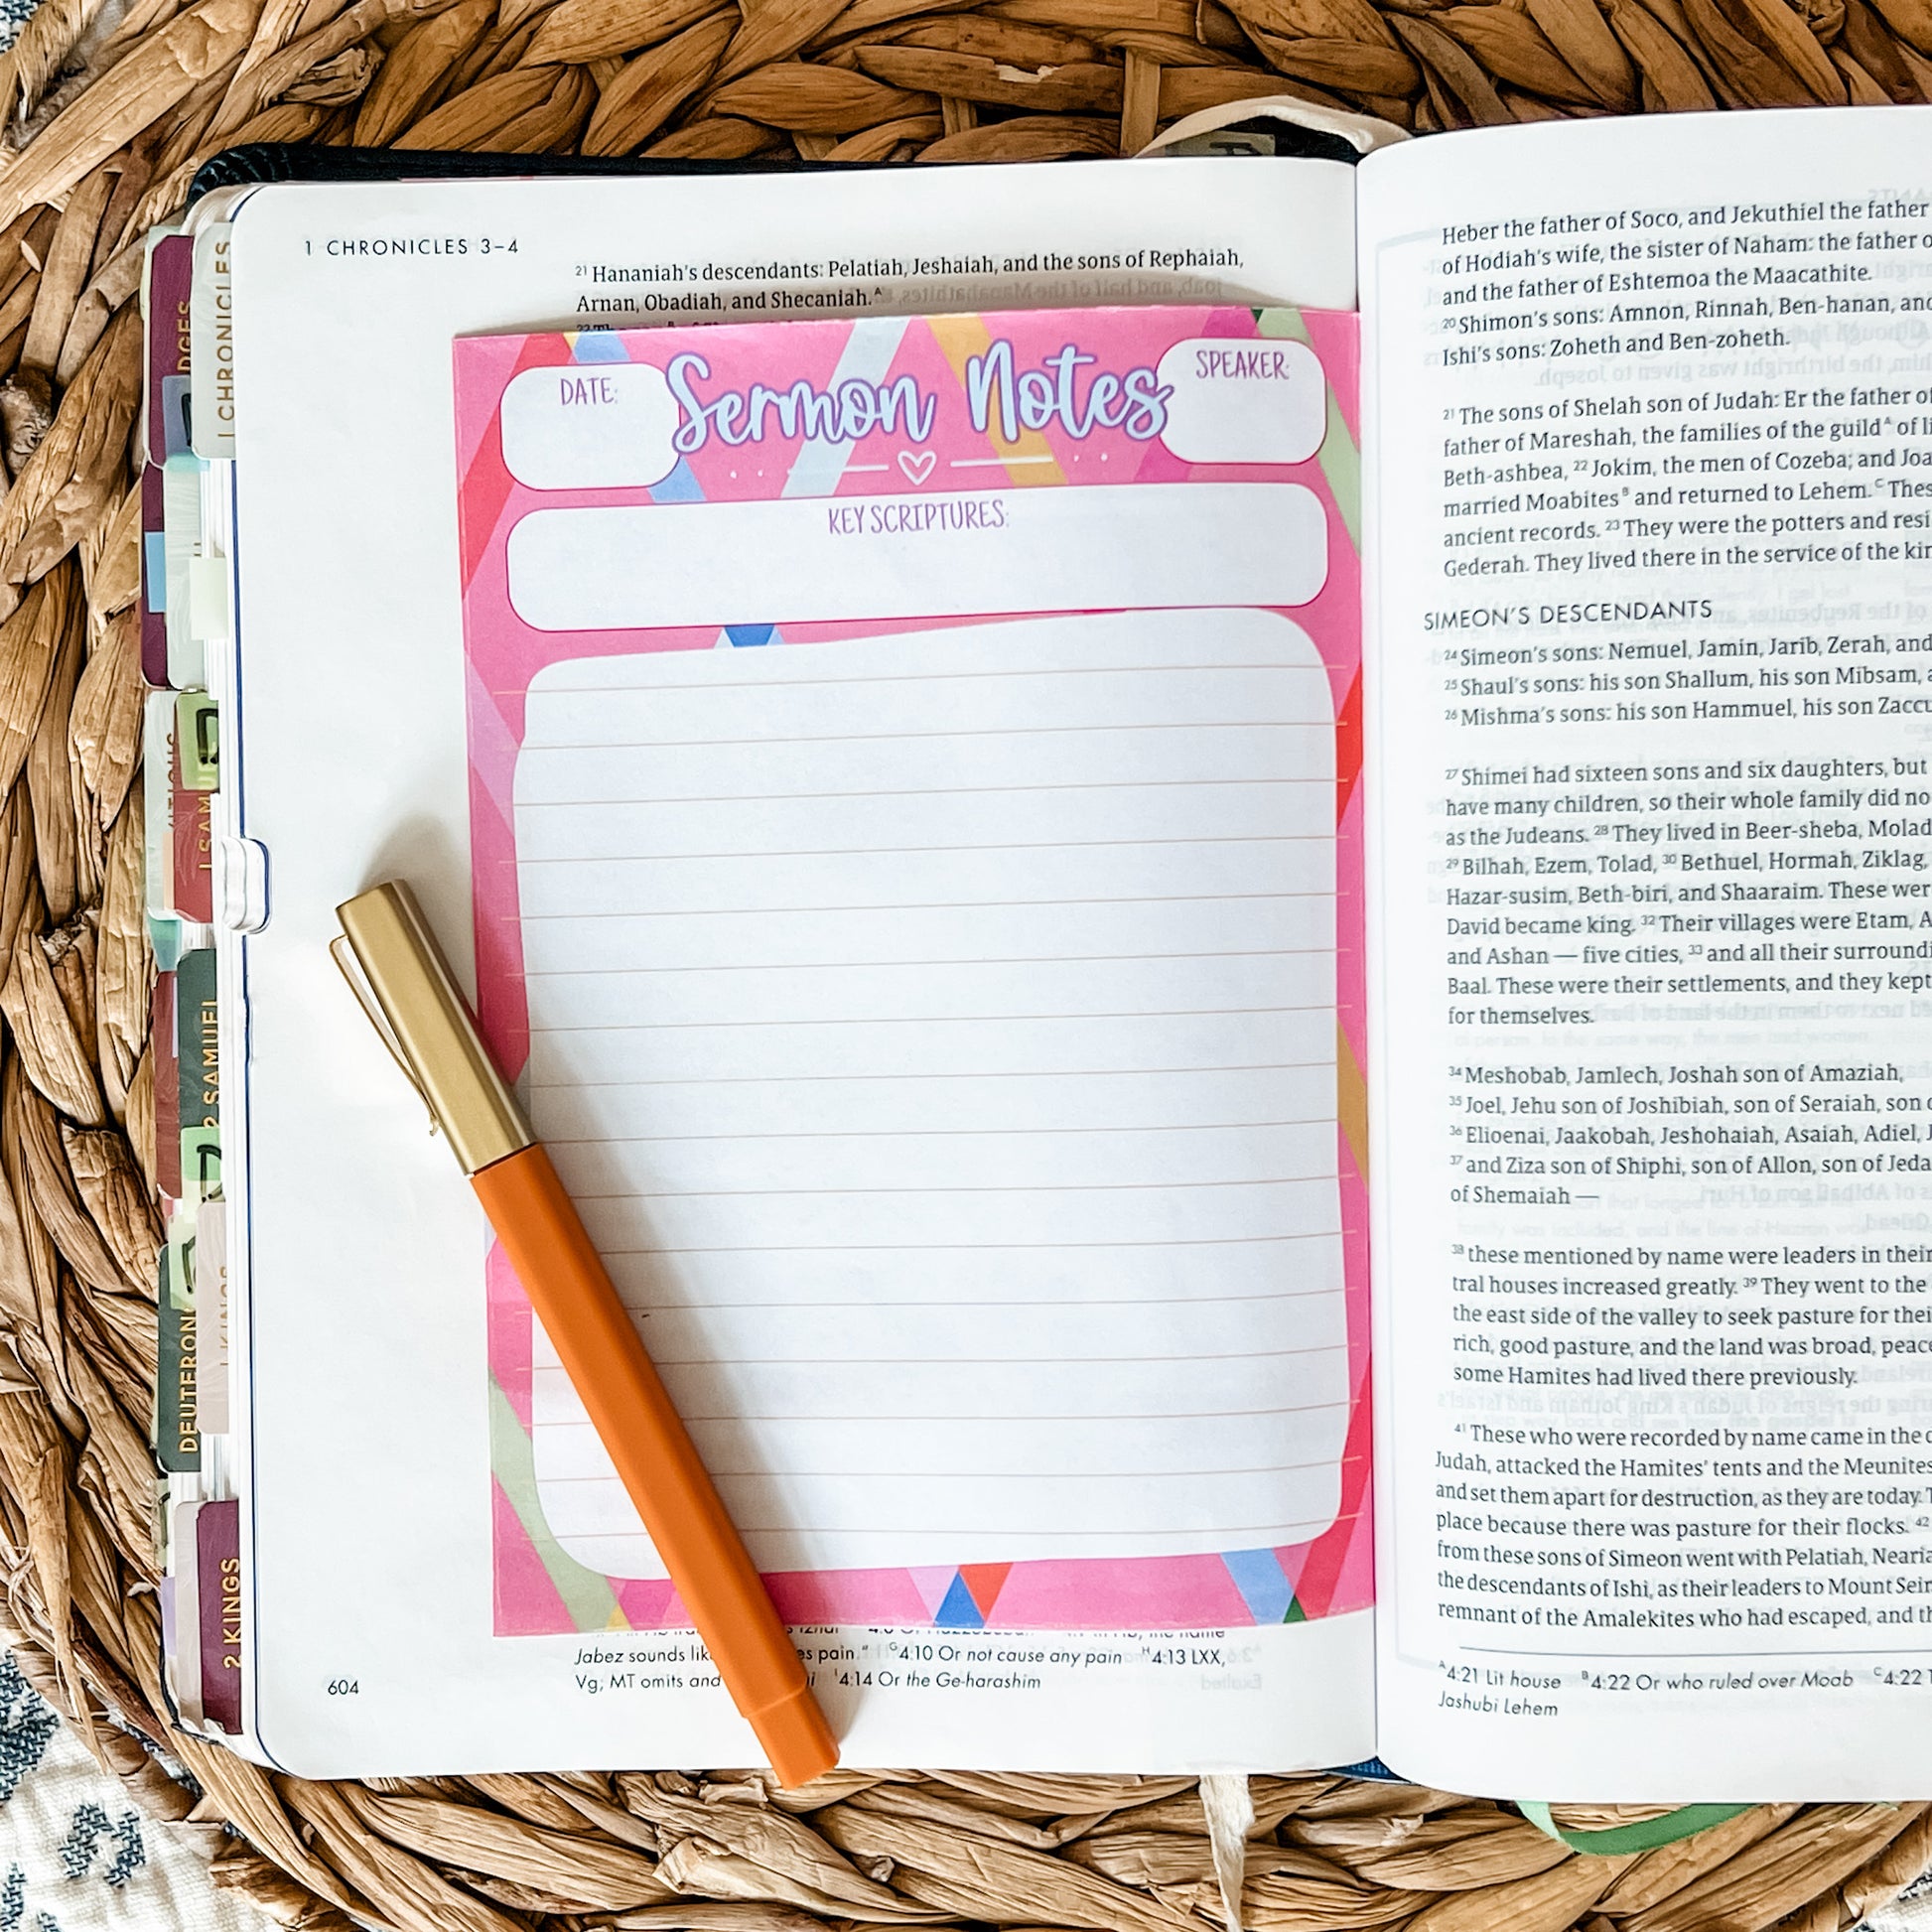 1 CHRONICLES 3–4
21 Hananiah's descendants: Pelatiah, Jeshaiah, and the sons of Rephaiah,
Arnan, Obadiah, and Shecaniah.A
DATE:
Sermon Notes
SPEAKER:
KEY SCRIPTURES:
Jabez sounds pain." G4:10 Or not cause any pain H4:13 LXX,
Vg; MT omits and I4:14 Or the Ge-harashim
604
Heber the father of Soco, and Jekuthiel the father
of Hodiah's wife, the sister of Naham: the father
and the father of Eshtemoa the Maacathite.
20 Shimon's sons: Amnon, Rinnah, Ben-hanan, and
Ishi's sons: Zoheth and Ben-zoheth.
21 The sons of Shelah son of Judah: Er the father of
father of Mareshah, the families of the guildA of
Beth-ashbea, 22 Jokim, the men of Cozeba; and
married MoabitesB and returned to Lehem.C
ancient records. 23 They were the potters and
Gederah. They lived there in the service of the
SIMEON'S DESCENDANTS
24 Simeon's sons: Nemuel, Jamin, Jarib, Zerah, and
25 Shaul's sons: his son Shallum, his son Mibsam,
26 Mishma's sons: his son Hammuel, his son
27 Shimei had sixteen sons and six daughters, but
have many children, so their whole family did
as the Judeans. 28 They lived in Beer-sheba,
29 Bilhah, Ezem, Tolad, 30 Bethuel, Hormah, Ziklag,
Hazar-susim, Beth-biri, and Shaaraim. These
David became king. 32 Their villages were Etam,
and Ashan — five cities, 33 and all their
Baal. These were their settlements, and they kept
for themselves.
34 Meshobab, Jamlech, Joshah son of Amaziah,
35 Joel, Jehu son of Joshibiah, son of Seraiah, son
36 Elioenai, Jaakobah, Jeshohaiah, Asaiah, Adiel,
37 and Ziza son of Shiphi, son of Allon, son of
of Shemaiah —
38 these mentioned by name were leaders in their
tral houses increased greatly. 39 They went to the
the east side of the valley to seek pasture for
rich, good pasture, and the land was broad,
some Hamites had lived there previously.
41 These who were recorded by name came in the
Judah, attacked the Hamites' tents and the Meunites
and set them apart for destruction, as they are today.
place because there was pasture for their flocks. 42
from these sons of Simeon went with Pelatiah,
the descendants of Ishi, as their leaders to Mount Seir
remnant of the Amalekites who had escaped, and
A4:21 Lit house B4:22 Or who ruled over Moab C4:22
Jashubi Lehem
1 CHRONICLES
2 SAMUEL
2 KINGS